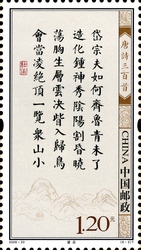 《唐詩三百首》
CHINA 中国邮政
岱宗夫如何齊魯青未了
造化鍾神秀陰陽割昏曉
蕩胸生層雲決眥入歸鳥
會當凌絕頂一覽衆山小
1.20元